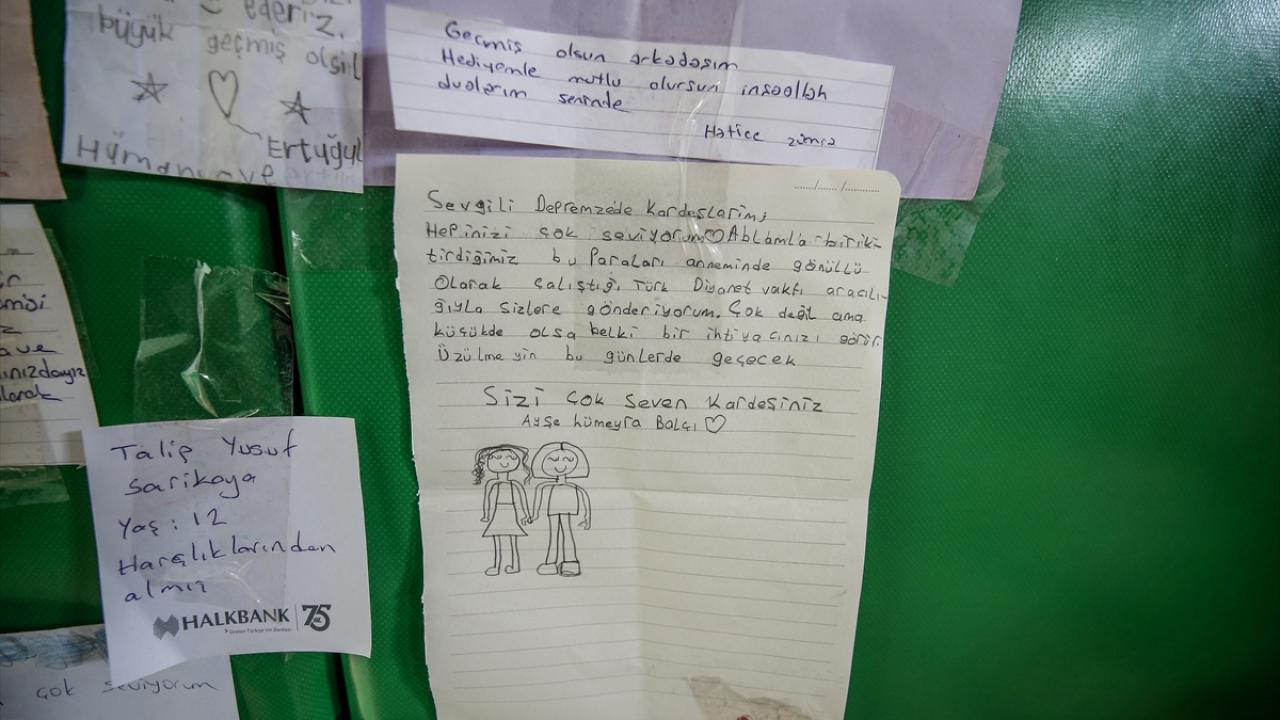 ederiz.
büyük geçmiş olsil
Ertuğul
Hümanur ve
Geçmiş olsun arkadaşım
Hediyemle mutlu olursun inşaallah
dualarım seninde
Hatice zümra
...../...../............
Sevgili Depremzede Kardeşlarim;
Hepinizi çok seviyorum♡Ablamla birik-
tirdiğimiz bu Paraları anneminde gönüllü
Olarak çalıştığı Türk Diyanet vakfı aracılı-
ğıyla sizlere gönderiyorum. Çok değil ama
küçükde olsa belki bir ihtiyacınızı görür.
Üzülmeyin bu günlerde geçecek
Sizi çok seven Kardeşiniz
Ayşe hümeyra Balçı ♡
ave
ınızdayız
larak
Talip Yusuf
Sarikaya
Yaş : 12
Harçlıklarından
almış
HALKBANK 75
Üreten Türkiye'nin Bankası
çok seviyorum